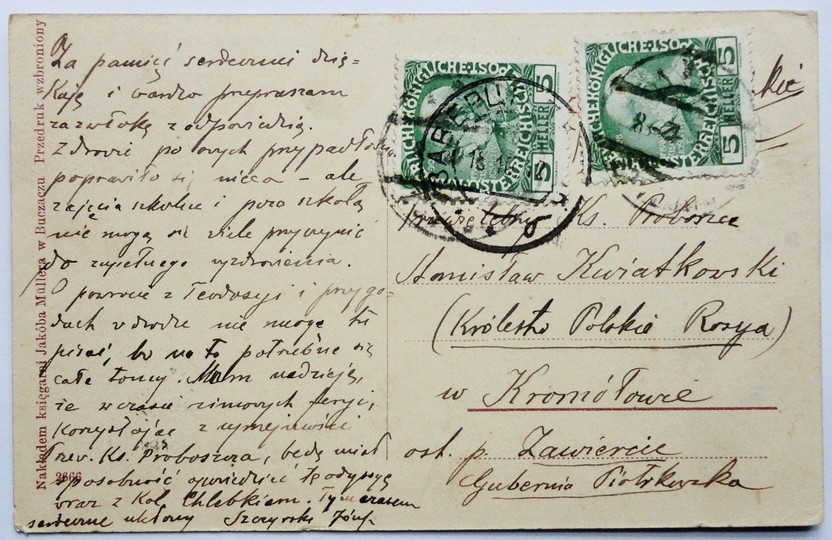 Za pamięć serdecznei dzię=
kuję i bardzo przepraszam
za zwłokę z odpowiedzią.
Zdrowie po owych przypadłoś
poprawiło się nieco – ale
zajęcia szkolne i poza szkołą
nie mogą się wiele przyczynić
do zupełnego wyzdrowienia.
O powrocie z Teodosyi i przygo-
dach w drodze nie mogę tu
pisać, bo na to potrzebne są
całe tomy. Mam nadzieję,
że w czasie zimowych feryi,
korzystając z uprzejmości
Przew. Ks. Proboszcza, będę miał
sposobność opowiedzieć tę odysseję
wraz z Kol. Chlebkiem. Tymczasem
serdeczne ukłony Szczyrski Józef
Nakładem księgarni Jakóba Müllera w Buczaczu Przedruk wzbroniony
2666
5 HELLER 5
5 HELLER 5
Przewielebny Ks. Proboszcz
Stanisław Kwiatkowski
(Królestwo Polskie Rosya)
w Kromołowie
ost. p. Zawiercie
Gubernia Piotrkowska